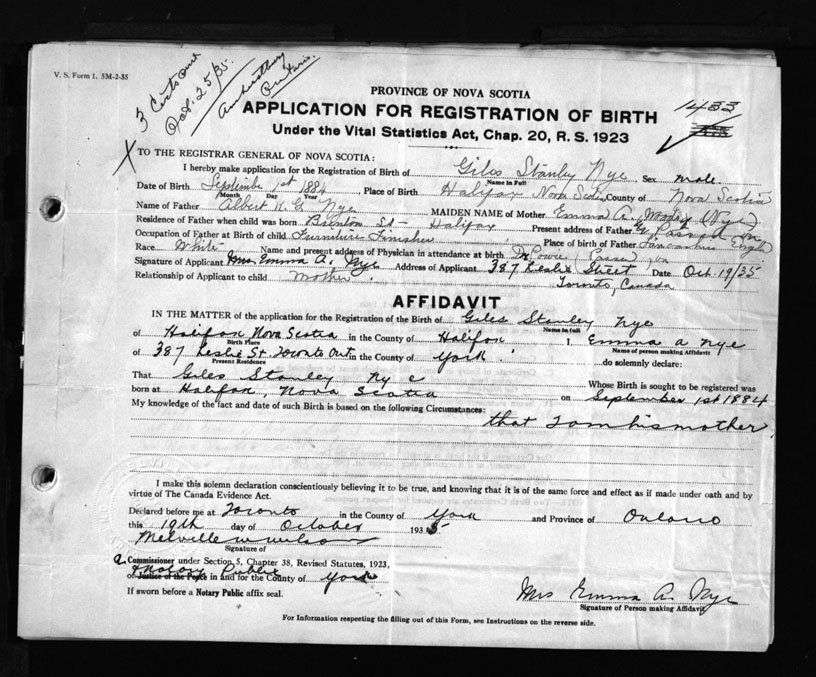 V. S. Form 1. 5M-2-35
3 Certs out
Oct. 25/35.
Amherstburg
Ontario.
PROVINCE OF NOVA SCOTIA
1433
APPLICATION FOR REGISTRATION OF BIRTH
Under the Vital Statistics Act, Chap. 20, R. S. 1923
X TO THE REGISTRAR GENERAL OF NOVA SCOTIA:
I hereby make application for the Registration of Birth of Giles Stanley Nye Sex male
Name in Full
Date of Birth September 1st 1884, Place of Birth Halifax Nova Scotia, County of Nova Scotia
Month Day Year
Name of Father Albert G. Nye MAIDEN NAME of Mother Emma A. (Nye)
Residence of Father when child was born Brenton St - Halifax Present address of Father
Occupation of Father at Birth of child Furniture Finisher Place of birth of Father Lancashire
Race White Name and present address of Physician in attendance at birth Dr
Signature of Applicant Mrs Emma A. Nye Address of Applicant 387 Leslie Street Date Oct. 19/35
Relationship of Applicant to child mother Toronto, Canada
AFFIDAVIT
IN THE MATTER of the application for the Registration of the Birth of Giles Stanley Nye
Name in full
of Halifax Nova Scotia in the County of Halifax I, Emma A Nye
Birth Place Name of person making Affidavit
of 387 Leslie St. Toronto Ont in the County of York do solemnly declare:
Present Residence
That Giles Stanley Nye Whose Birth is sought to be registered was
born at Halifax, Nova Scotia on September 1st 1884
My knowledge of the fact and date of such Birth is based on the following Circumstances:
that I am his mother
I make this solemn declaration conscientiously believing it to be true, and knowing that it is of the same force and effect as if made under oath and by
virtue of The Canada Evidence Act.
Declared before me at Toronto in the County of York and Province of Ontario
this 19th day of October 1935
Melville Wilson
Signature of
a Commissioner under Section 5, Chapter 38, Revised Statutes, 1923,
Notary Public
or Justice of the Peace in and for the County of York
If sworn before a Notary Public affix seal.
Mrs Emma A. Nye
Signature of Person making Affidavit
For Information respecting the filling out of this Form, see Instructions on the reverse side.